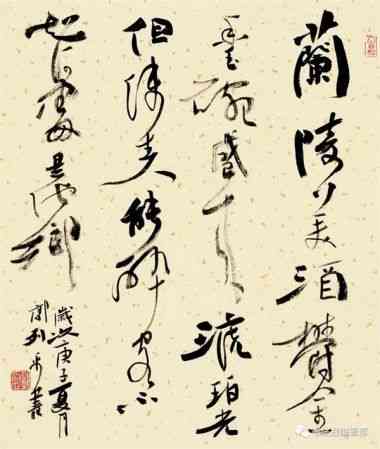 蘭陵美酒鬱金
香玉碗盛來琥珀光
但使主人能醉客不
知何處是他鄉
歲次庚子夏月
書